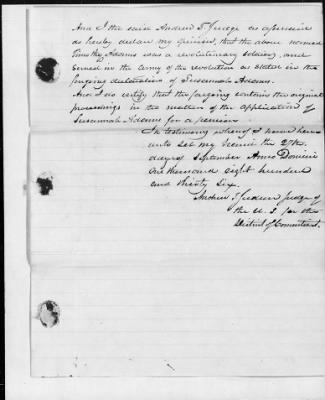 And I the said Andrew T. Judge as aforesaid
do hereby declare my opinion, that the above named
Timothy Adams was a revolutionary soldier, and
served in the army of the revolution as stated in the
forgoing declaration of Susannah Adams.
And I do certify that the forgoing contains the original
proceedings in the matter of the application of
Susannah Adams for a pension
In testimony whereof I have here
unto set my hand the 27th
day of September Anno Domini
One thousand eight hundred
and thirty six.
Andrew T. Judson Judge of
the U. S. for the
District of Connecticut.